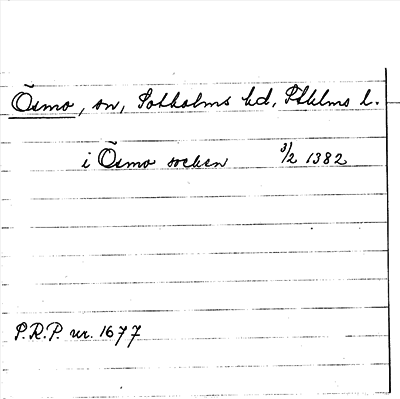 Ösmo, sn, Sotholms hd, Sthlms l.
i Ösmo socken 3/2 1382
P.R.P. nr. 1677